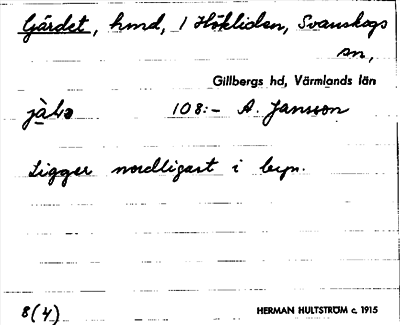 Gärdet, hmd, i Höklidan, Svanskogs
sn,
Gillbergs hd, Värmlands län
108:- A. Jansson
Ligger nordligast i byn.
8(4)
HERMAN HULTSTRÖM c. 1915